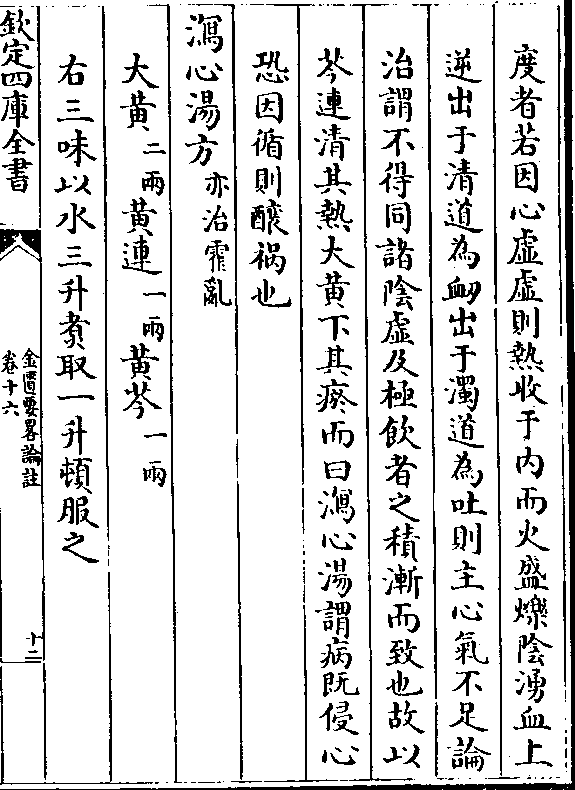 度者若因心虚虚則熱收于内而火盛爍陰湧血上
逆出于清道為衂出于濁道為吐則主心氣不足論
治謂不得同諸陰虚及極飲者之積漸而致也故以
芩連清其熱大黄下其瘀而曰瀉心湯謂病既侵心
恐因循則釀禍也
瀉心湯方亦治霍亂
大黄二兩黄連一兩黄芩一兩
右三味以水三升煮取一升頓服之
欽定四庫全書
金匱要畧論註
卷十六
十二